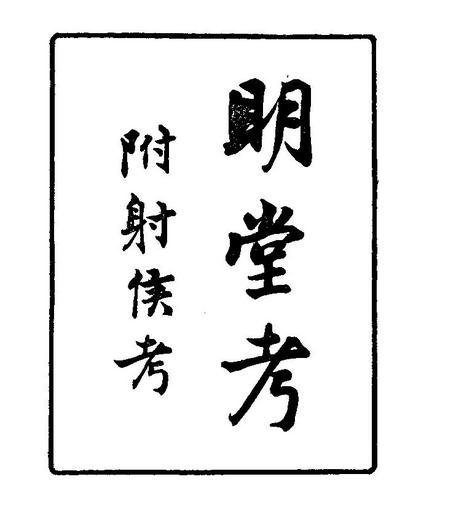 明堂考
附射侯考